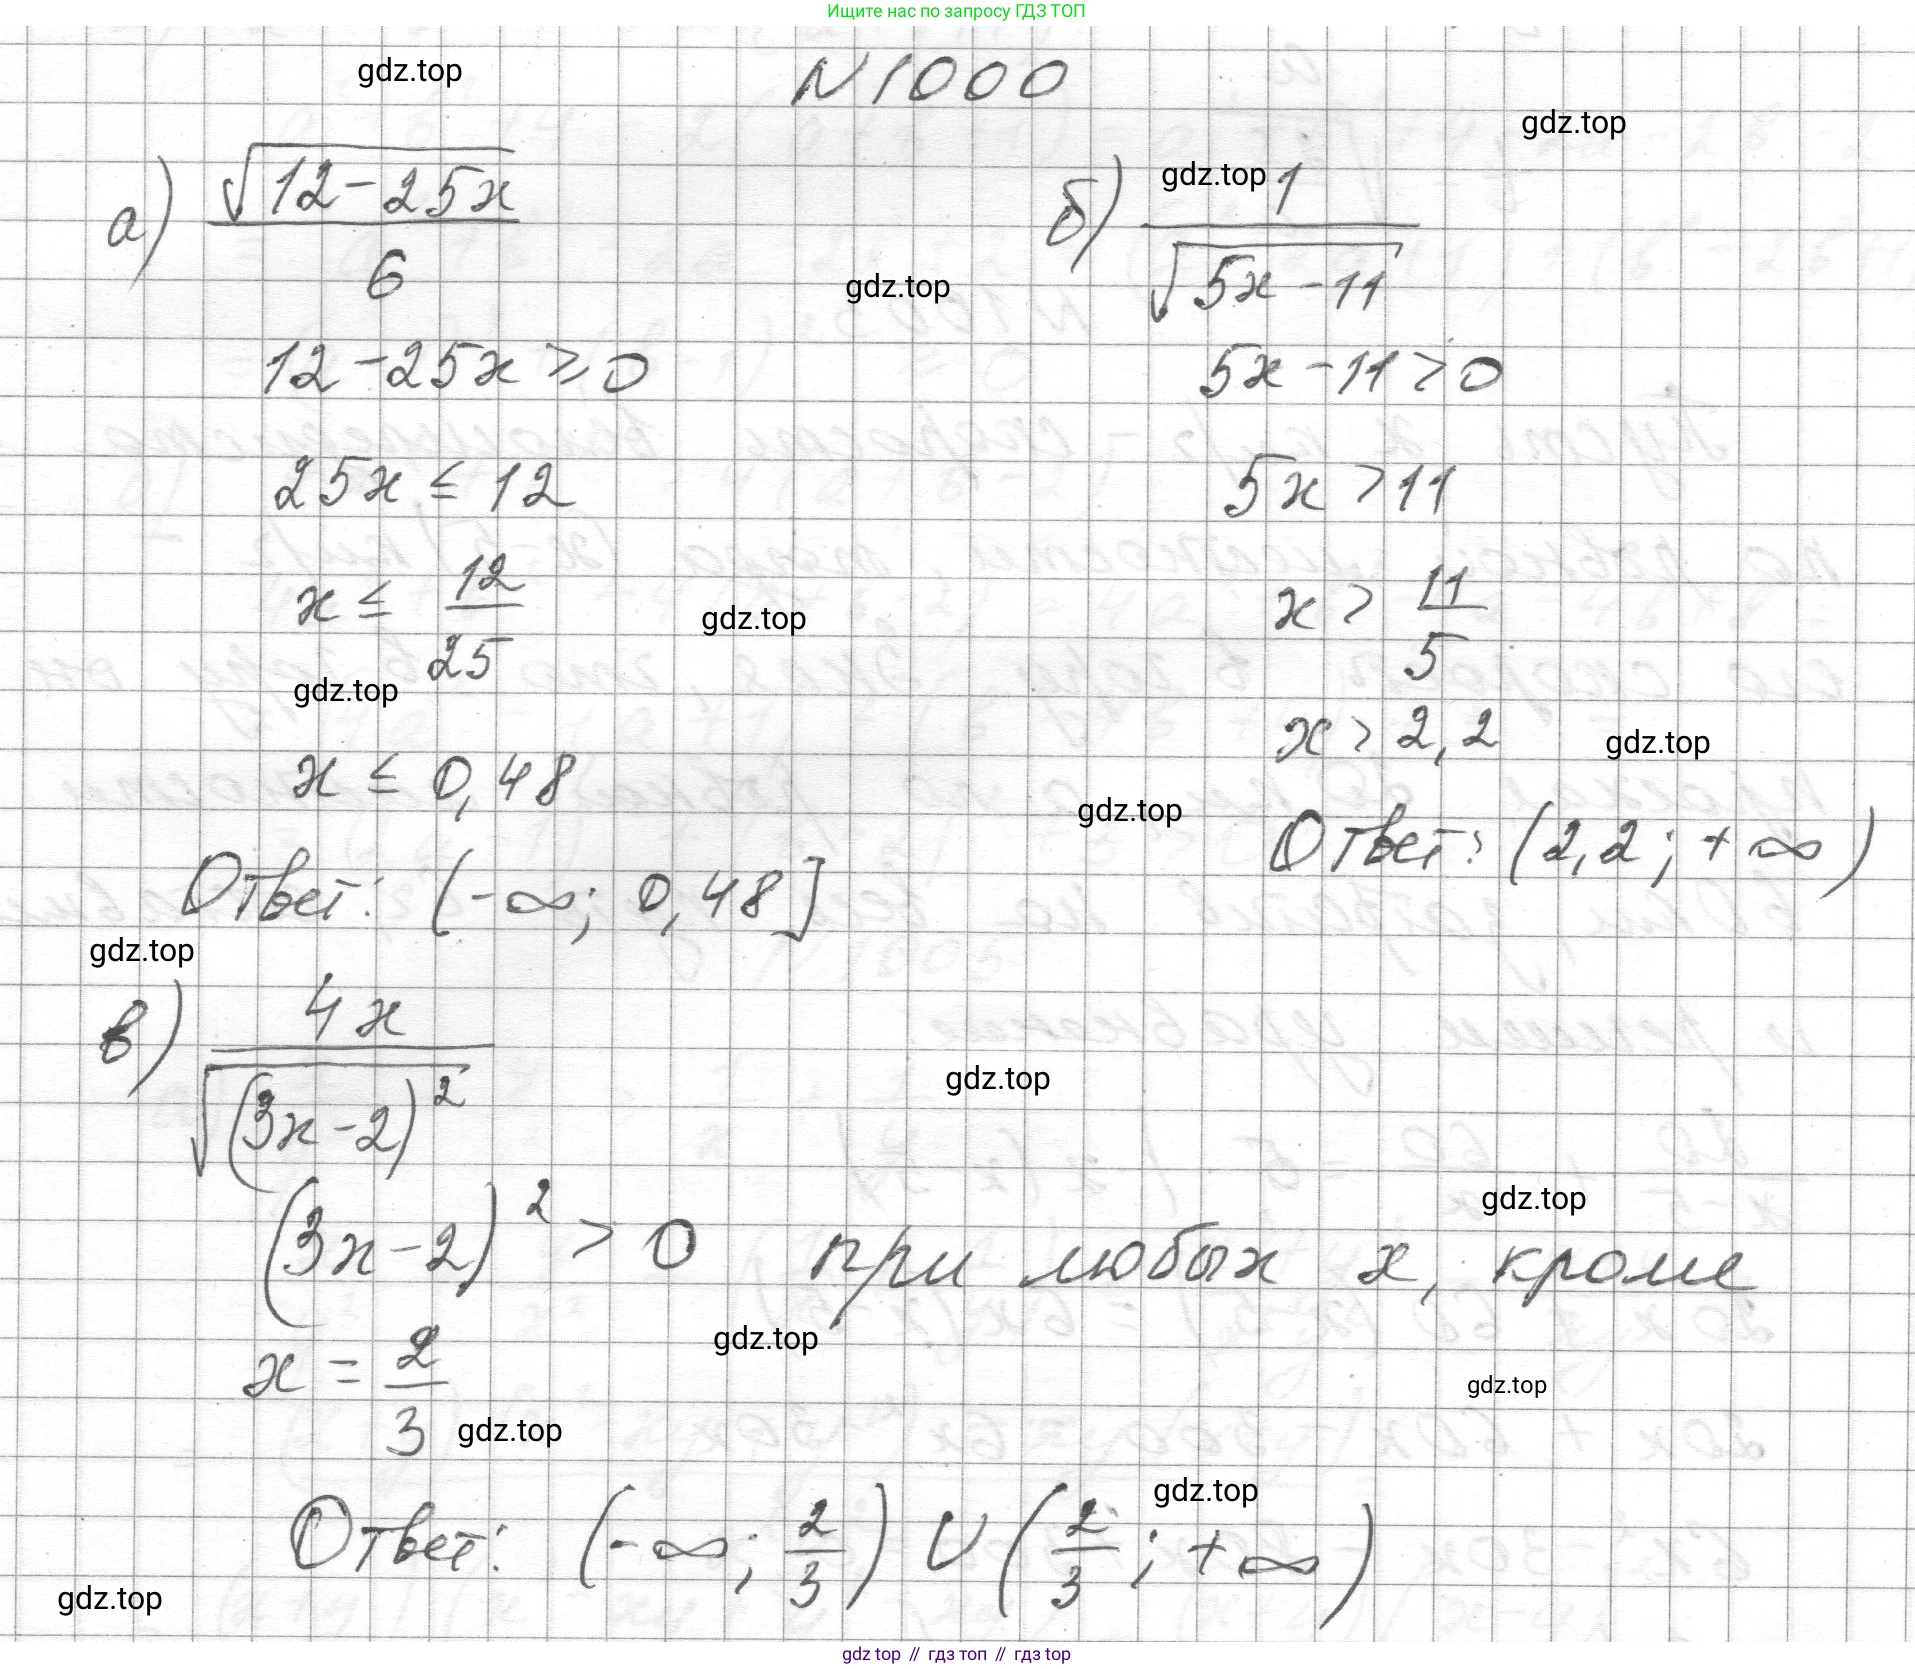 Ищите нас по запросу ГДЗ ТОП
N 1000
gdz.top
gdz.top
а) √(12-25x) / 6
gdz.top
12-25x ≥ 0
25x ≤ 12
x ≤ 12/25
gdz.top
gdz.top
x ≤ 0,48
Ответ: (-∞; 0,48]
б) 1 / √(5x-11)
gdz.top
5x-11 > 0
5x > 11
x > 11/5
x > 2,2
gdz.top
gdz.top
Ответ: (2,2; +∞)
gdz.top
в) 4x / √((3x-2)²)
gdz.top
gdz.top
(3x-2)² > 0 при любых x, кроме
gdz.top
x = 2/3
gdz.top
gdz.top
gdz.top
Ответ: (-∞; 2/3) ∪ (2/3; +∞)
gdz.top
gdz top // гдз топ // гдз top